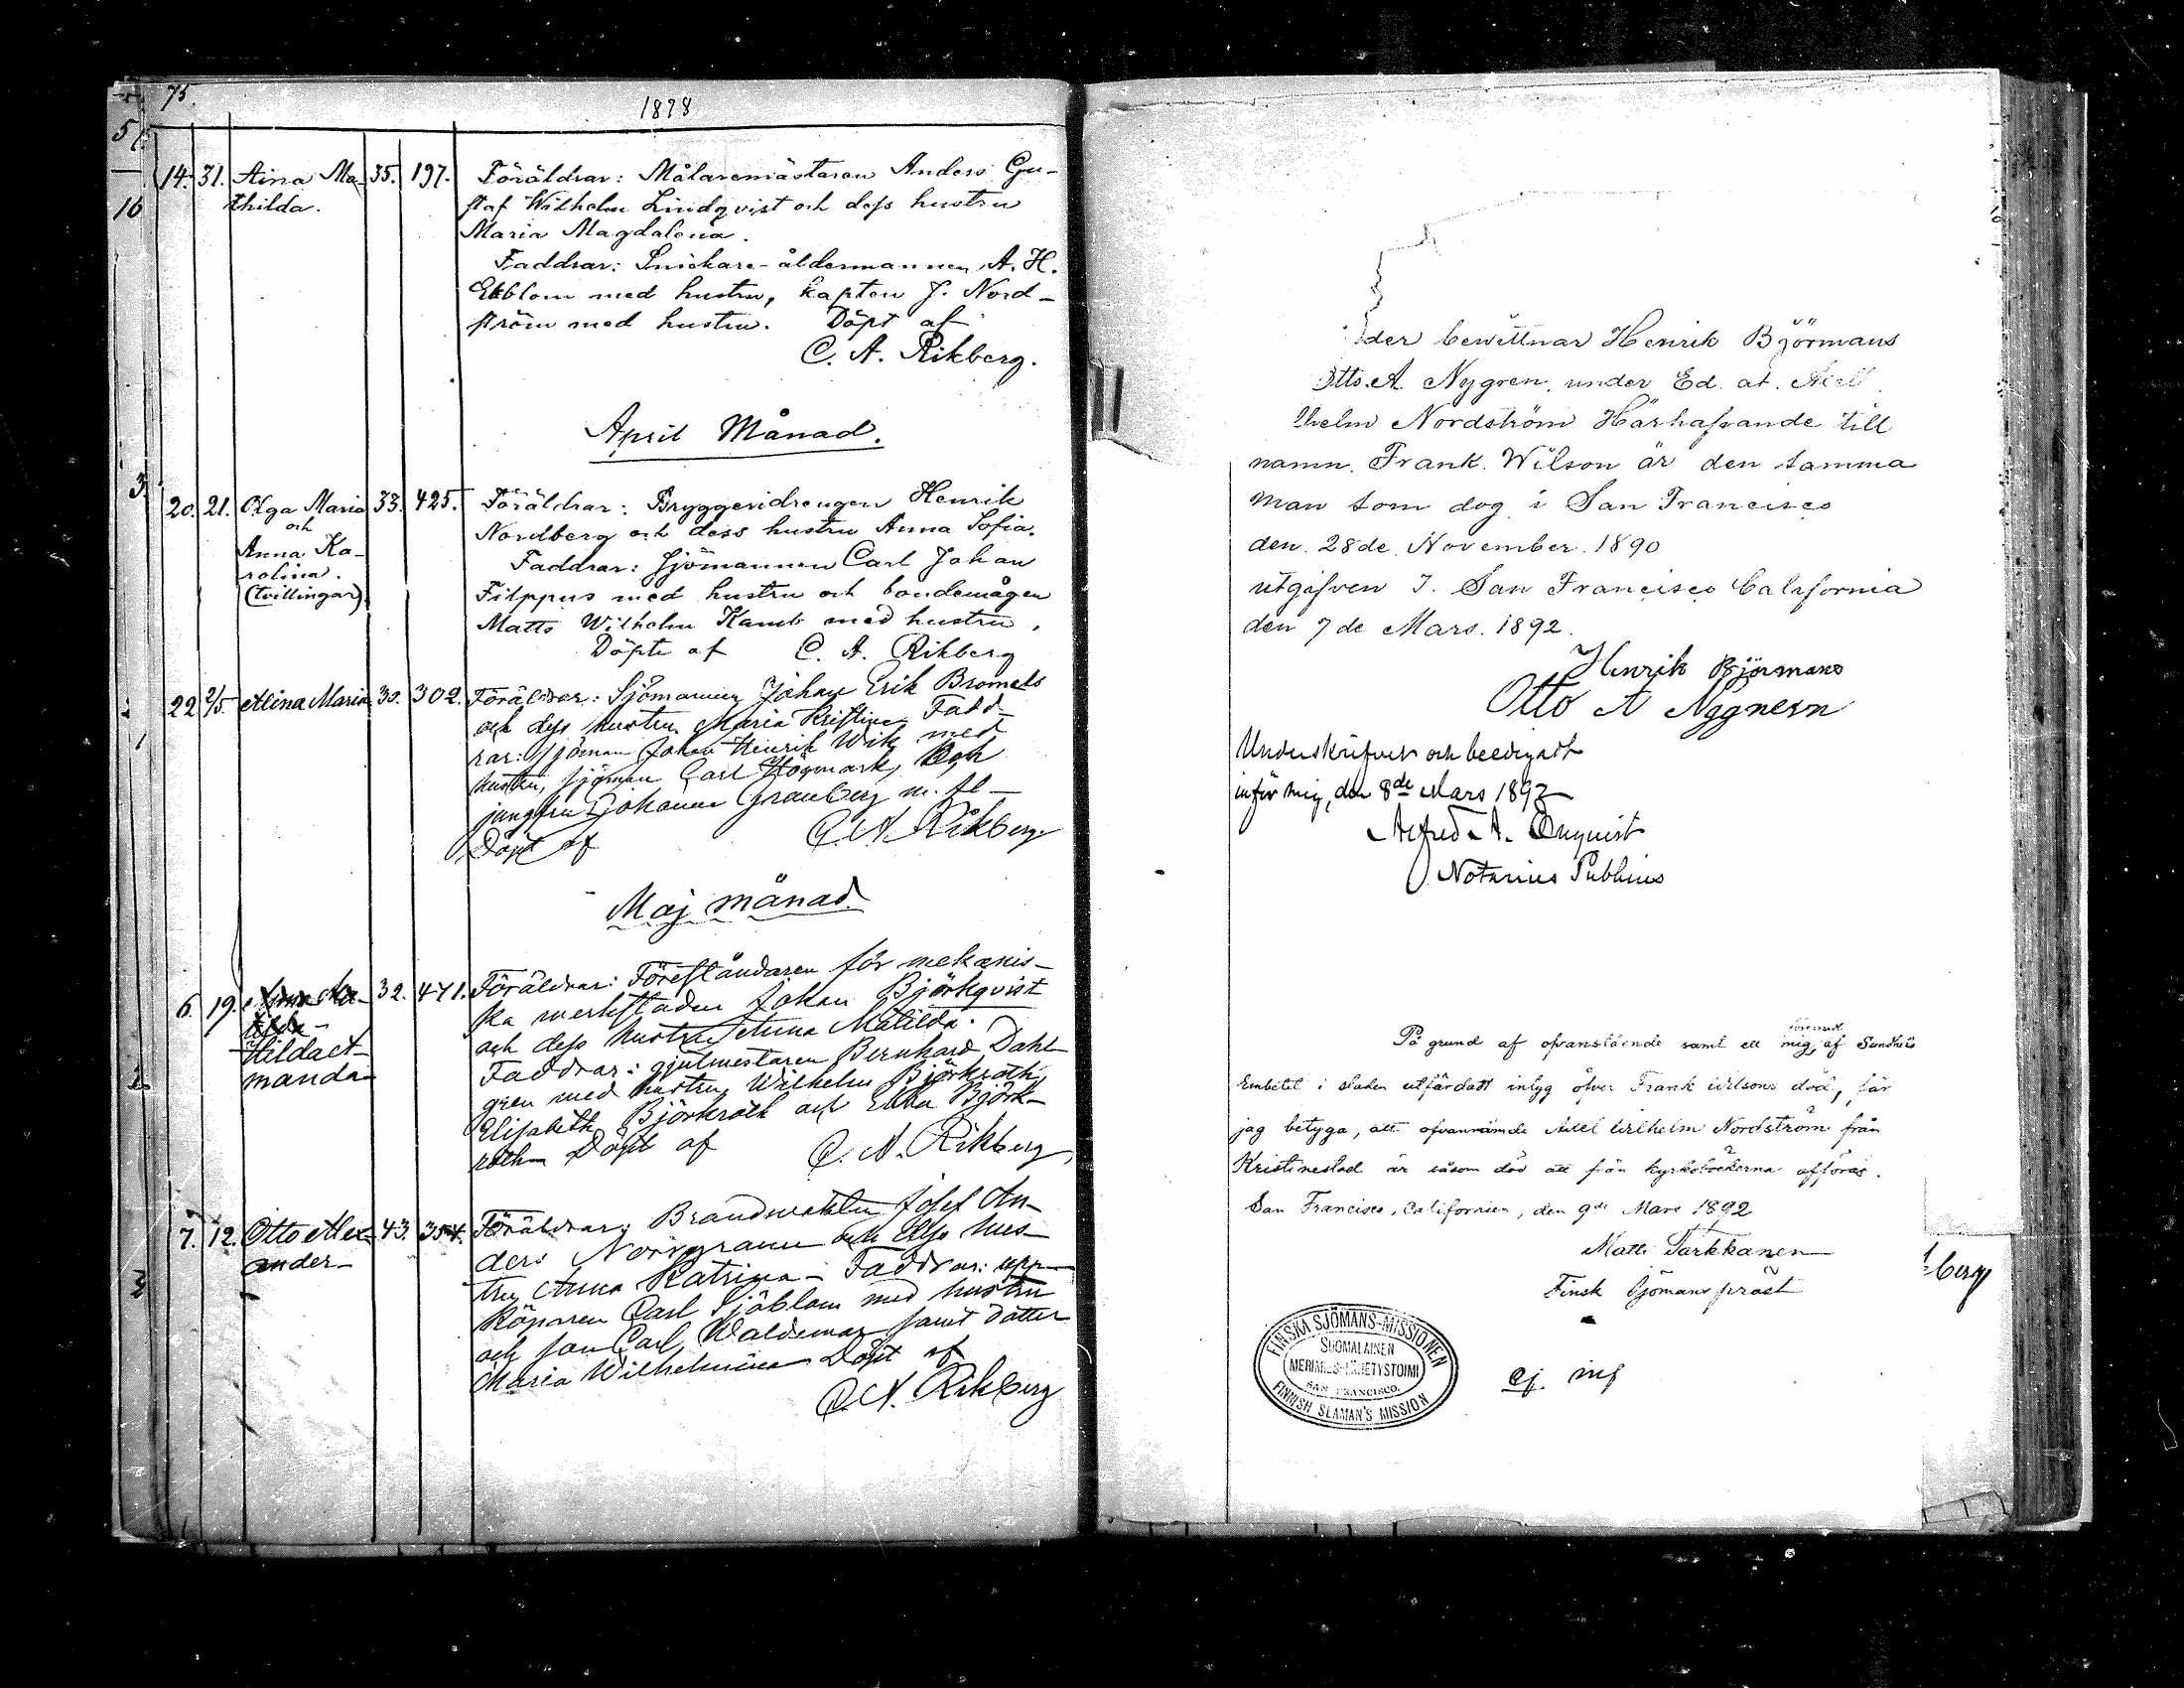 75.
1878
14. 31. Aina Ma- 35. 197. Föräldrar: Målaremästaren Anders Gu-
thilda. staf Wilhelm Lindqvist och dess hustru
Maria Magdalena.
Faddrar: Snickare-åldermannen A. H.
Ekblom med hustru, kapten J. Nord-
ström med hustru. Döpt af
C. A. Rikberg.
April Månad.
20. 21. Olga Maria 33. 425. Föräldrar: Bryggeridrengen Henrik
och Nordberg och dess hustru Anna Sofia.
Anna Ka- Faddrar: Sjömannen Carl Johan
rolina. Filppus med hustru och bondemågen
(tvillingar) Matts Wilhelm Kamb med hustru.
Döpte af C. A. Rikberg
22 2/5. Alina Maria 30. 302. Föräldrar: Sjömannen Johan Erik Bromels
och dess hustru Maria Kristina Fadd-
rar: Sjöman Johan Henrik Wik med
hustru, sjöman Carl Högmark, och
jungfru Johanna Granberg m. fl.
Döpt af C. A. Rikberg
Maj månad
6. 19. 32. 471. Föräldrar: Föreståndaren för mekanis-
ka werkstaden Johan Björkqvist
Hilda A- och dess hustru Anna Matilda.
manda Faddrar: gjutmestaren Bernhard Dahl-
gren med hustru, Wilhelm Björkroth,
Elisabeth Björkroth och Ebba Björk-
roth Döpt af C. A. Rikberg
7. 12. Otto Alex- 43. 354. Föräldrar: Brandwakten Josef An-
ander ders Norrgrann och dess hus-
tru Anna Katrina - Faddrar: upp-
köparen Carl Sjöblom med hustru
och son Carl Waldemar samt dotter
Maria Wilhelmina Döpt af
C. A. Rikberg
der bewittnar Henrik Björmans
Otto. A. Nygren. under Ed. at. Axell
lhelm Nordström Härhafvande till
namn. Frank. Wilson är den samma
man som dog i San Francisco
den. 28 de. November. 1890
utgifven I. San Francisco California
den 7 de Mars. 1892.
Henrik Björmans
Otto A Nygnern
Underskrifvet och beedigadt
inför mig, den 8de Mars 1892
Alfred A. Enquist
Notarius Publicus
På grund af ofvanstående samt ett mig, af Sundhets
Embetet i staden utfärdadt intyg öfver Frank Wilsons död, får
jag betyga, att ofvannämde Axel Wilhelm Nordström från
Kristinestad är såsom död att från kyrkoböckerna afföras.
San Francisco, Californien, den 9de Mars 1892
Matti Tarkkanen
Finsk Sjömanspräst
berg
FINSKA SJÖMANS-MISSIONEN
SUOMALAINEN
MERIMIES-LÄHETYSTOIMI
SAN FRANCISCO.
FINNISH SEAMAN'S MISSION
ej inf